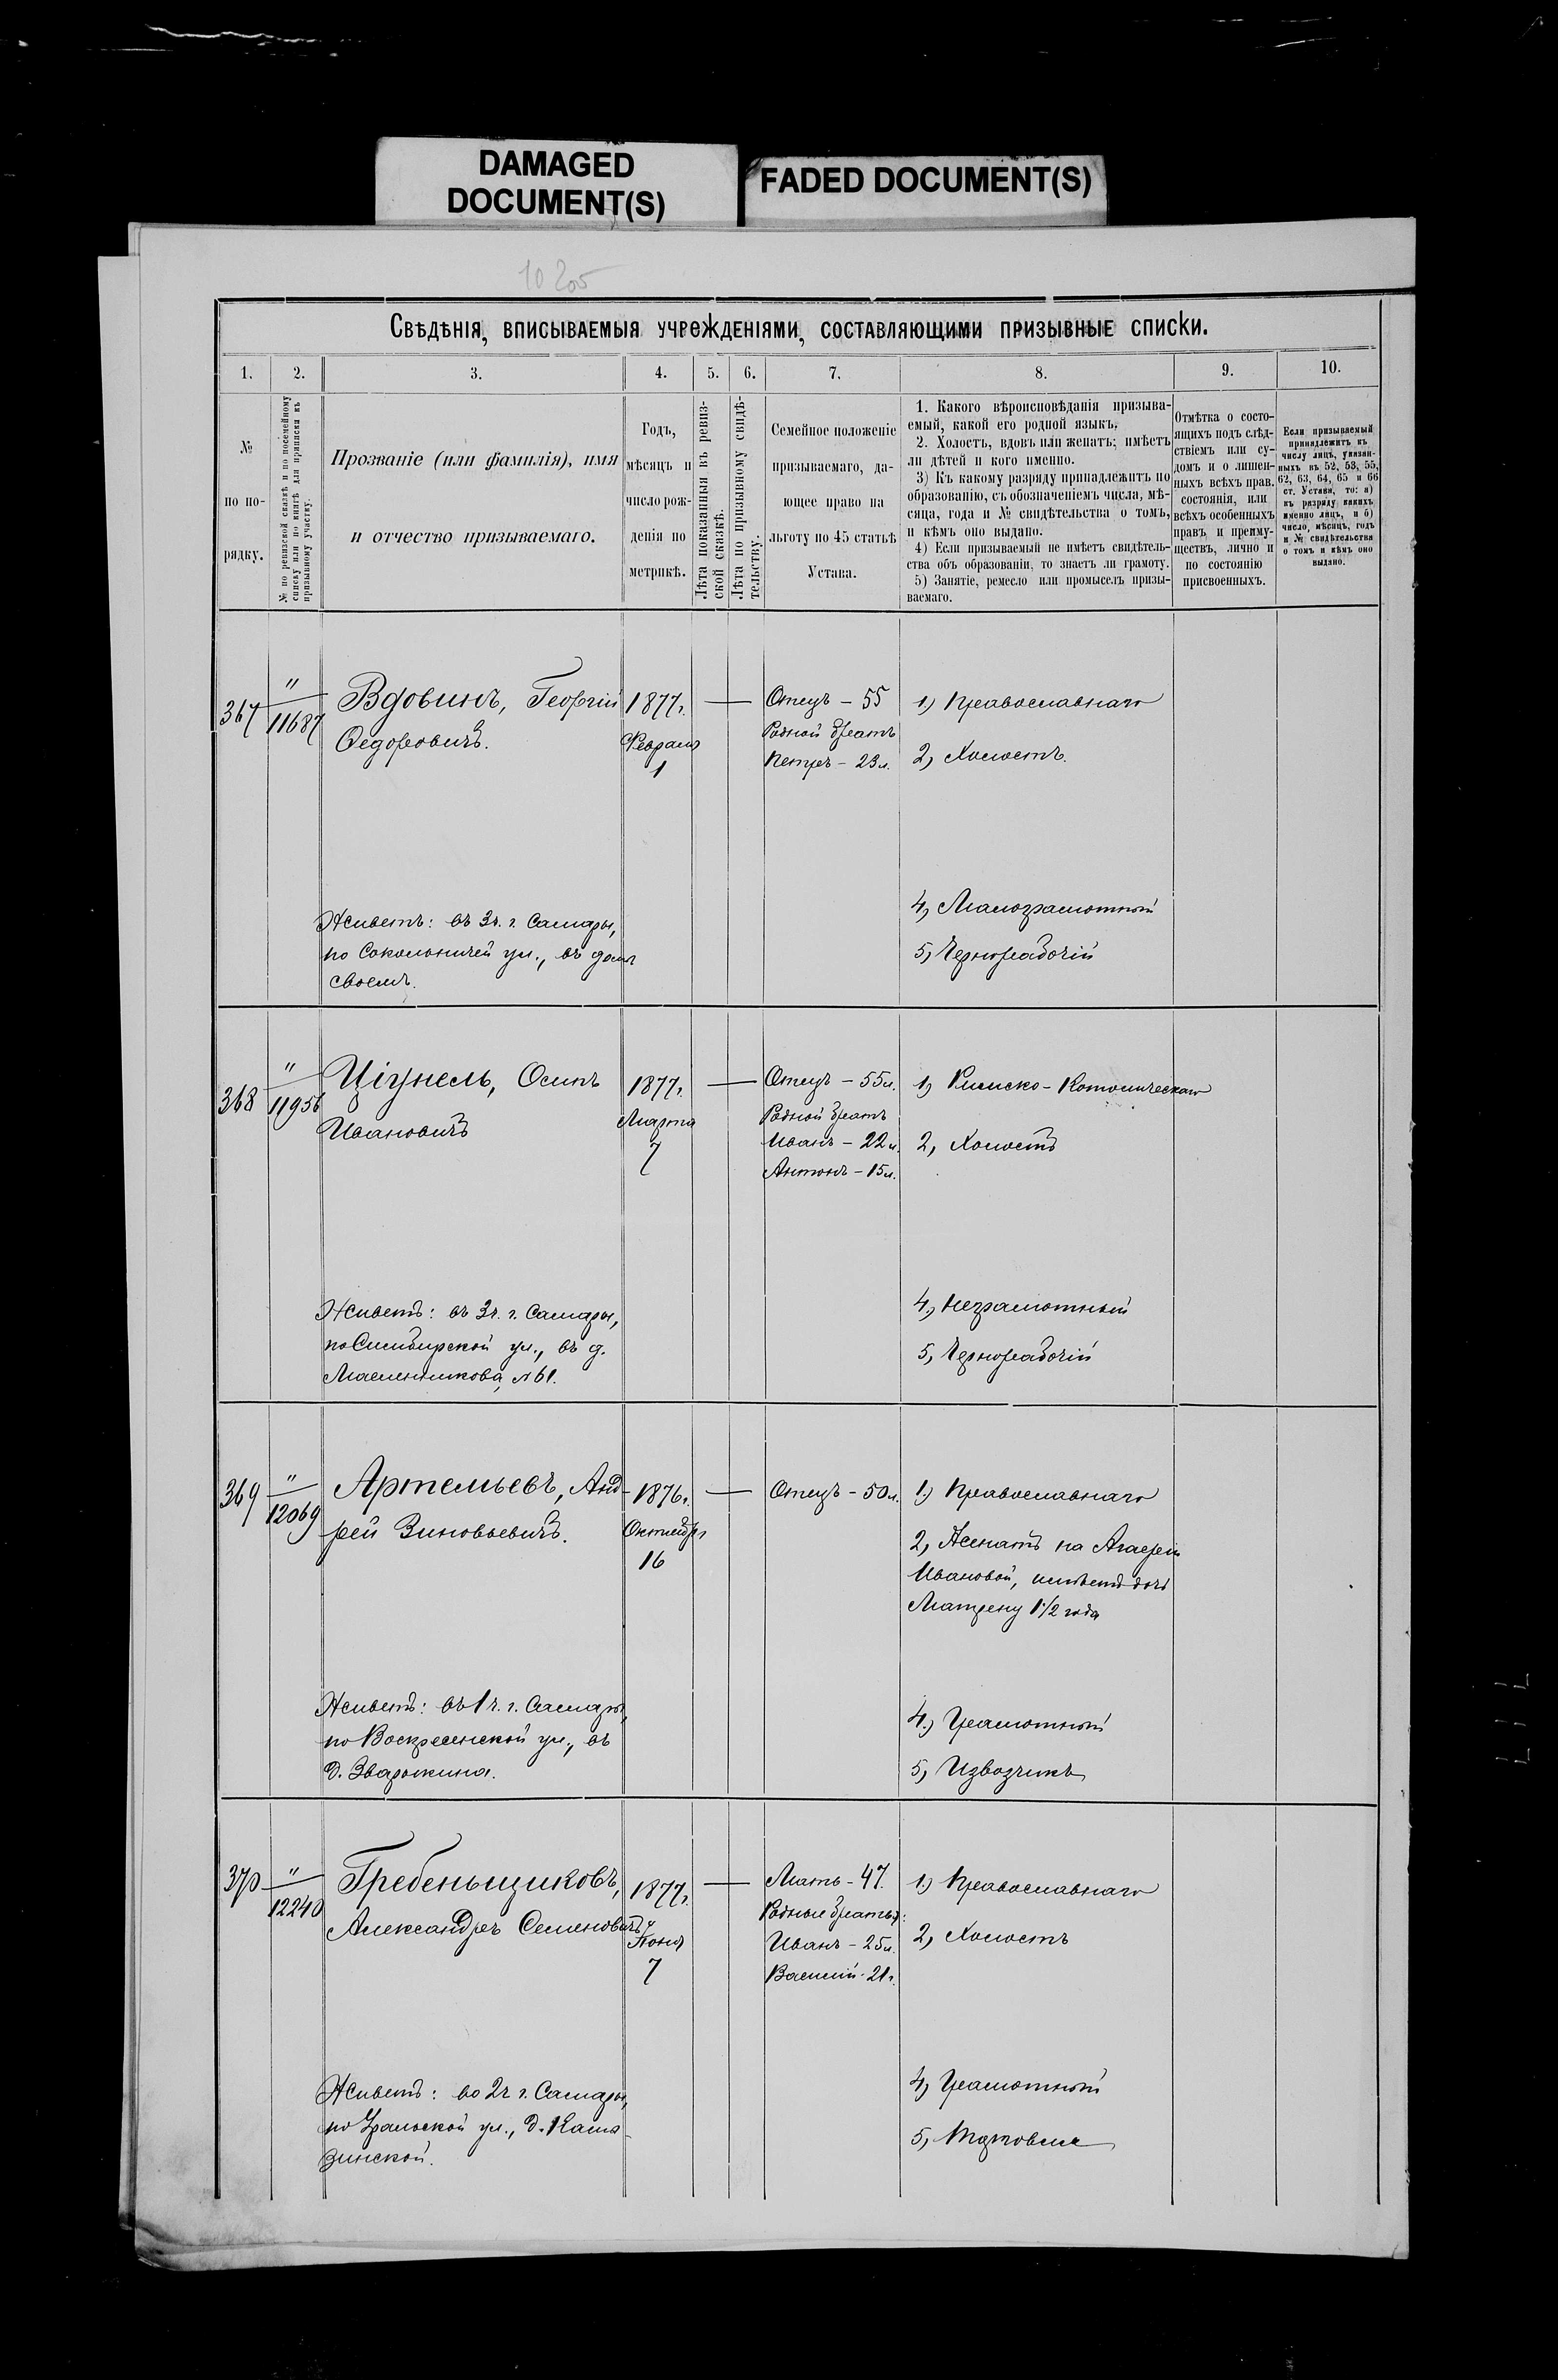 DAMAGED
DOCUMENT(S)
FADED DOCUMENT(S)
10 205
Свѣдѣнія, вписываемыя учрежденіями, составляющими призывные списки.
1. 2. 3. 4. 5. 6. 7. 8. 9. 10.
№
по по-
рядку.
№ по ревизской сказкѣ и по посемейному
списку или по книгѣ для приписки къ
призывному участку.
Прозваніе (или фамилія), имя
и отчество призываемаго.
Годъ,
мѣсяцъ и
число рож-
денія по
метрикѣ.
Лѣта показанныя въ ревиз-
ской сказкѣ.
Лѣта по призывному свидѣ-
тельству.
Семейное положеніе
призываемаго, да-
ющее право на
льготу по 45 статьѣ
Устава.
1. Какого вѣроисповѣданія призыва-
емый, какой его родной языкъ.
2. Холостъ, вдовъ или женатъ; имѣетъ
ли дѣтей и кого именно.
3) Къ какому разряду принадлежитъ по
образованію, съ обозначеніемъ числа, мѣ-
сяца, года и № свидѣтельства о томъ,
и кѣмъ оно выдано.
4) Если призываемый не имѣетъ свидѣтель-
ства объ образованіи, то знаетъ ли грамоту.
5) Занятіе, ремесло или промыселъ призы-
ваемаго.
Отмѣтка о состо-
ящихъ подъ слѣд-
ствіемъ или су-
домъ и о лишен-
ныхъ всѣхъ прав.
состоянія, или
всѣхъ особенныхъ
правъ и преиму-
ществъ, лично и
по состоянію
присвоенныхъ.
Если призываемый
принадлежитъ къ
числу лицъ, указан-
ныхъ въ 52, 53, 55,
62, 63, 64, 65 и 66
ст. Устава, то: а)
къ разряду какихъ
именно лицъ, и б)
число, мѣсяцъ, годъ
и № свидѣтельства
о томъ и кѣмъ оно
выдано.
367
"
11687
Вдовинъ, Георгій
Ѳедоровичъ.
1877г.
Февраля
1
Отецъ – 55
Родной братъ
Петръ – 23л.
1) Православнаго
2) Холостъ.
4) Малограмотный
5) Чернорабочій
Живетъ: въ 3ч. г. Самары,
по Сокольничей ул., въ домѣ
своемъ.
368
"
11956
Ціунель, Осипъ
Ивановичъ
1877г.
Марта
7
Отецъ – 55л.
Родной братъ
Иванъ – 22л.
Антонъ – 15л.
1) Римско-Католическаго
2, Холостъ
4) Неграмотный
5, Чернорабочій
Живетъ: въ 3ч. г. Самары,
по Симбирской ул., въ д.
Масленникова, №61.
369
"
12069
Артемьевъ, Анд-
рей Зиновьевичъ.
1876г.
Октября
16
Отецъ – 50л.
1) Православнаго
2, Женатъ на
Ивановой, имѣетъ дочь
Матрену 1 1/2 года
4) Грамотный
5) Извозчикъ
Живетъ: въ 1ч. г. Самары,
по Воскресенской ул., въ
д. Зварыкина.
370
"
12240
Гребеньщиковъ,
Александръ Семеновичъ
1877г.
7
Мать – 47.
Родные братья:
Иванъ – 25л.
Василій – 21г.
1) Православнаго
2) Холостъ
4) Грамотный
5) Торговые
Живетъ: во 2ч г. Самары,
по Уральской ул., д. Кама-
зинской.